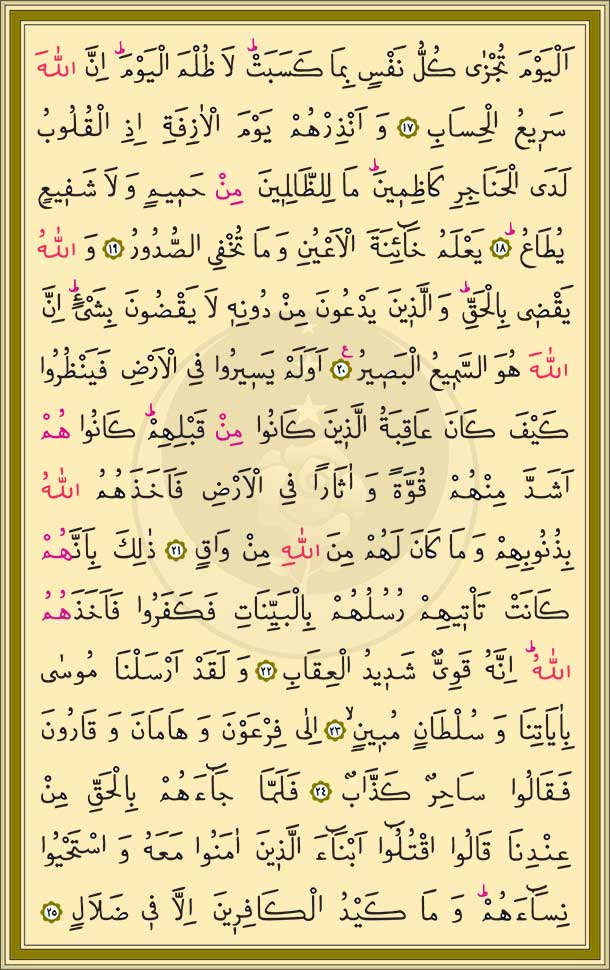 اَلْيَوْمَ تُجْزٰى كُلُّ نَفْسٍ بِمَا كَسَبَتْۜ لَا ظُلْمَ الْيَوْمَۜ اِنَّ اللّٰهَ
سَر۪يعُ الْحِسَابِ ﴿١٧﴾ وَ اَنْذِرْهُمْ يَوْمَ الْاٰزِفَةِ اِذِ الْقُلُوبُ
لَدَى الْحَنَاجِرِ كَاظِم۪ينَۜ مَا لِلظَّالِم۪ينَ مِنْ حَم۪يمٍ وَ لَا شَف۪يعٍ
يُطَاعُۜ ﴿١٨﴾ يَعْلَمُ خَٓائِنَةَ الْاَعْيُنِ وَ مَا تُخْفِي الصُّدُورُ ﴿١٩﴾ وَ اللّٰهُ
يَقْض۪ي بِالْحَقِّۜ وَ الَّذ۪ينَ يَدْعُونَ مِنْ دُونِه۪ لَا يَقْضُونَ بِشَيْءٍۜ اِنَّ
اللّٰهَ هُوَ السَّم۪يعُ الْبَص۪يرُ۟ ﴿٢٠﴾ اَوَلَمْ يَس۪يرُوا فِي الْاَرْضِ فَيَنْظُرُوا
كَيْفَ كَانَ عَاقِبَةُ الَّذ۪ينَ كَانُوا مِنْ قَبْلِهِمْۜ كَانُوا هُمْ
اَشَدَّ مِنْهُمْ قُوَّةً وَ اٰثَارًا فِي الْاَرْضِ فَاَخَذَهُمُ اللّٰهُ
بِذُنُوبِهِمْ وَ مَا كَانَ لَهُمْ مِنَ اللّٰهِ مِنْ وَاقٍ ﴿٢١﴾ ذٰلِكَ بِاَنَّهُمْ
كَانَتْ تَأْت۪يهِمْ رُسُلُهُمْ بِالْبَيِّنَاتِ فَكَفَرُوا فَاَخَذَهُمُ
اللّٰهُۜ اِنَّهُ قَوِيٌّ شَد۪يدُ الْعِقَابِ ﴿٢٢﴾ وَ لَقَدْ اَرْسَلْنَا مُوسٰى
بِاٰيَاتِنَا وَ سُلْطَانٍ مُب۪ينٍۙ ﴿٢٣﴾ اِلٰى فِرْعَوْنَ وَ هَامَانَ وَ قَارُونَ
فَقَالُوا سَاحِرٌ كَذَّابٌ ﴿٢٤﴾ فَلَمَّا جَٓاءَهُمْ بِالْحَقِّ مِنْ
عِنْدِنَا قَالُوا اقْتُلُٓوا اَبْنَٓاءَ الَّذ۪ينَ اٰمَنُوا مَعَهُ وَ اسْتَحْيُوا
نِسَٓاءَهُمْۜ وَ مَا كَيْدُ الْكَافِر۪ينَ اِلَّا ف۪ي ضَلَالٍ ﴿٢٥﴾